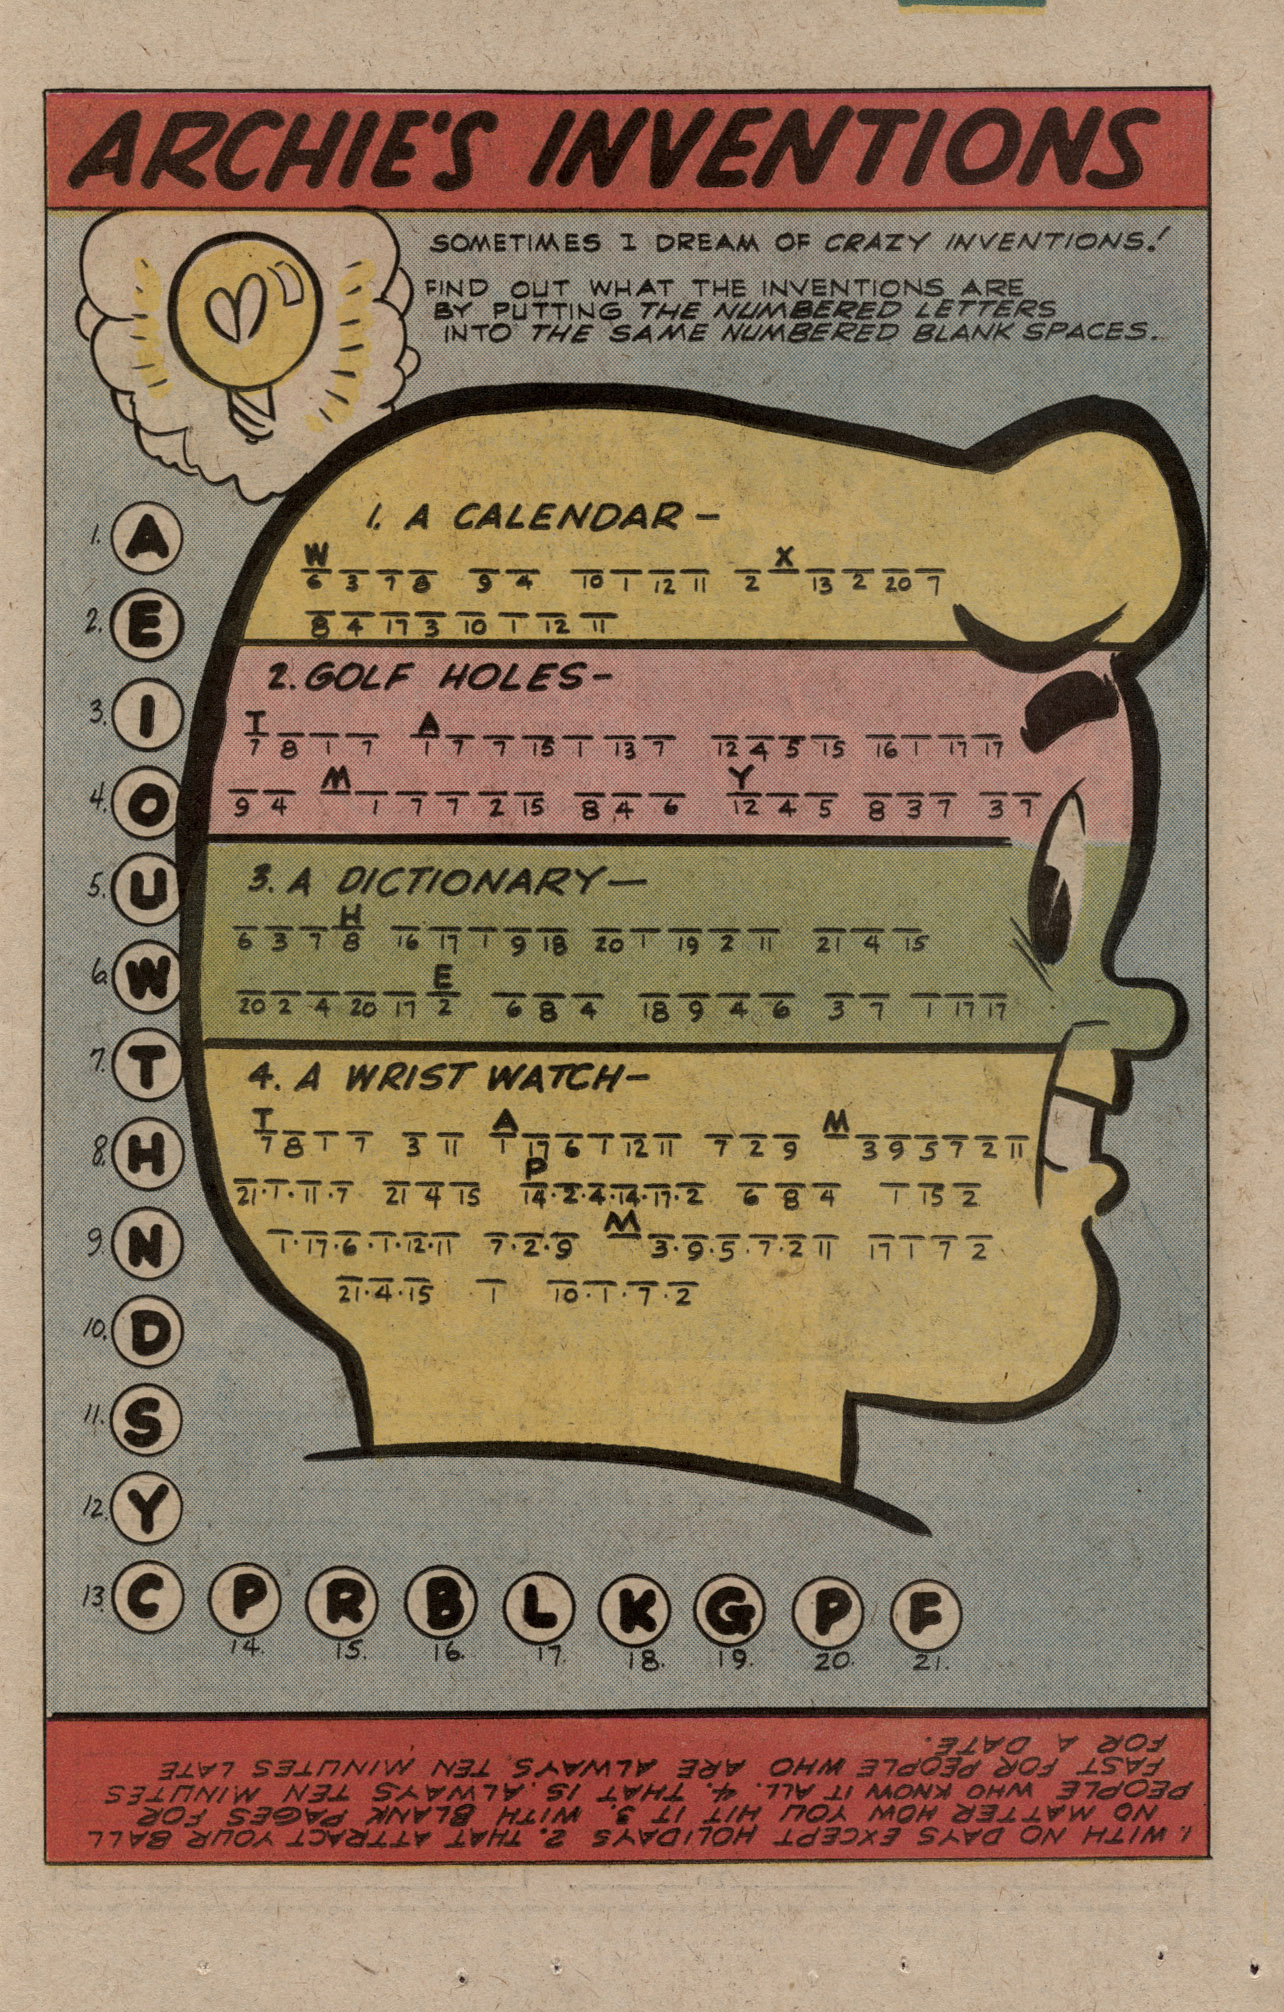 ARCHIE'S INVENTIONS
SOMETIMES I DREAM OF CRAZY INVENTIONS!
FIND OUT WHAT THE INVENTIONS ARE
BY PUTTING THE NUMBERED LETTERS
INTO THE SAME NUMBERED BLANK SPACES.
1. A CALENDAR—
W X
6 3 7 8 9 4 10 1 12 11 2 13 2 20 7
8 4 17 3 10 1 12 11
2. GOLF HOLES—
T A
7 8 1 7 1 7 7 15 1 13 7 12 4 5 15 16 1 17 17
M Y
9 4 1 7 7 2 15 8 4 6 12 4 5 8 3 7 3 7
3. A DICTIONARY—
H
6 3 7 8 16 17 1 9 18 20 1 19 2 11 21 4 15
E
20 2 4 20 17 2 6 8 4 18 9 4 6 3 7 1 17 17
4. A WRIST WATCH—
T A M
7 8 1 7 3 11 1 17 6 1 12 11 7 2 9 3 9 5 7 2 11
P
21·1·11·7 21 4 15 14·2·4·14·17·2 6 8 4 1 15 2
M
1·17·6·1·12·11 7·2·9 3·9·5·7·2 11 17 1 7 2
21·4·15 1 10·1·7·2
1. A
2. E
3. I
4. O
5. U
6. W
7. T
8. H
9. N
10. D
11. S
12. Y
13. C P R B L K G P F
14. 15. 16. 17. 18. 19. 20. 21.
1. WITH NO DAYS EXCEPT HOLIDAYS 2. THAT ATTRACT YOUR BALL
NO MATTER HOW YOU HIT IT 3. WITH BLANK PAGES FOR
PEOPLE WHO KNOW IT ALL. 4. THAT IS ALWAYS TEN MINUTES
FAST FOR PEOPLE WHO ARE ALWAYS TEN MINUTES LATE
FOR A DATE.